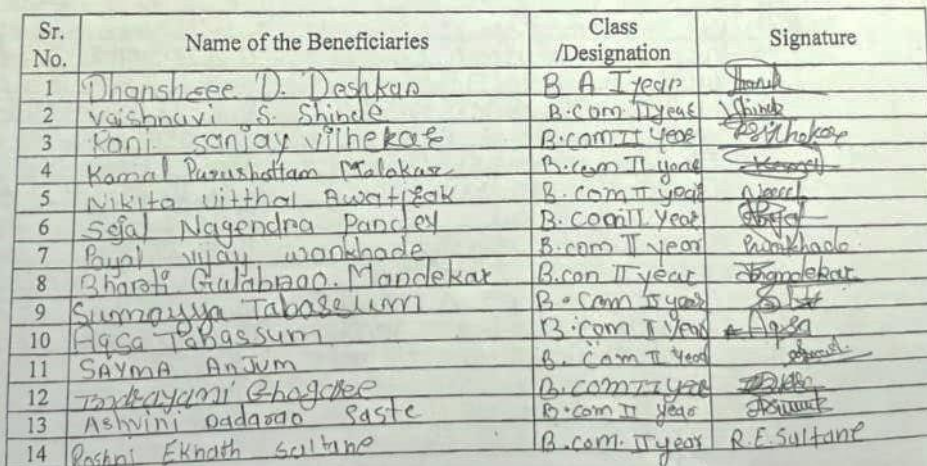 Sr. No. Name of the Beneficiaries Class /Designation Signature
1 Dhanshree D. Deshkar B A I year
2 Vaishnavi S. Shinde B.com II year Shinde
3 Rani sanjay vilhekar B.com II year
4 Komal Purushottam Malokar B.com II year Komal
5 Nikita vitthal B.com II year
6 Sejal Nagendra Pandey B.com II year Sejal
7 Payal vijay wankhade B.com II year Pwankhade
8 Bharati Gulabrao. Mandekar B.com II year
9 Sumayya Tabassum B.com II year
10 Aqsa Tabassum B.com II year Aqsa
11 SAYMA ANJUM B. Com II Year
12 Ghogare B.com II year
13 Ashvini Dadarao Saste B.com II year
14 Roshni Eknath sultane B.com. II year R.E.Sultane